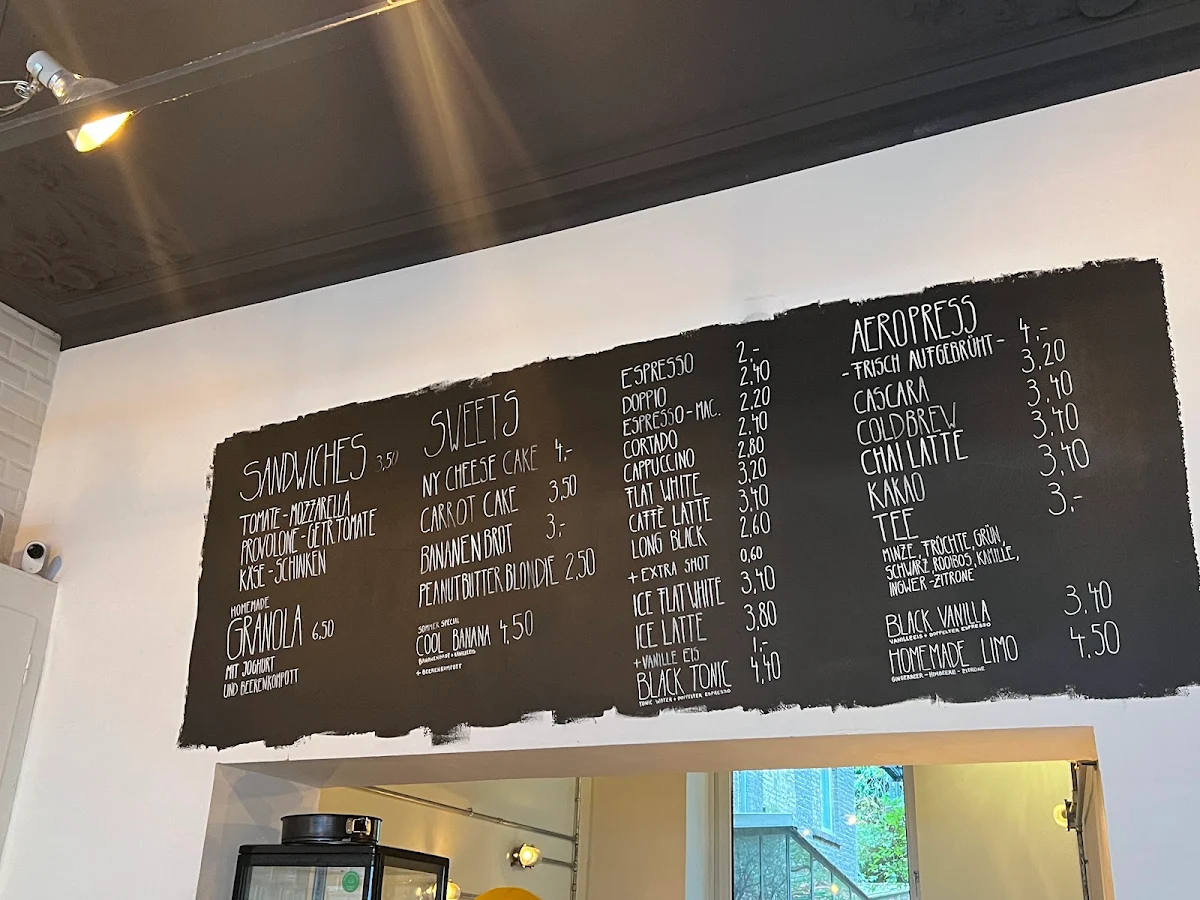 SANDWICHES 3,50
TOMATE-MOZZARELLA
PROVOLONE-GETR.TOMATE
KÄSE-SCHINKEN
HOMEMADE
GRANOLA 6,50
MIT JOGHURT
UND BEERENKOMPOTT
SWEETS
NY CHEESE CAKE 4,-
CARROT CAKE 3,50
BANANENBROT 3,-
PEANUTBUTTER BLONDIE 2,50
SOMMER SPECIAL
COOL BANANA 4,50
BANANENBROT + VANILLEEIS
+ BEERENKOMPOTT
ESPRESSO 2,-
DOPPIO 2,40
ESPRESSO-MAC. 2,20
CORTADO 2,40
CAPPUCCINO 2,80
FLAT WHITE 3,20
CAFFÈ LATTE 3,40
LONG BLACK 2,60
+ EXTRA SHOT 0,60
ICE FLAT WHITE 3,40
ICE LATTE 3,80
+ VANILLE EIS 1,-
BLACK TONIC 4,40
TONIC WATER + DOPPELTER ESPRESSO
AEROPRESS 4,-
-FRISCH AUFGEBRÜHT-
CASCARA 3,20
COLDBREW 3,40
CHAI LATTE 3,40
KAKAO 3,40
TEE 3,-
MINZE, FRÜCHTE, GRÜN,
SCHWARZ, ROOIBOS, KAMILLE,
INGWER-ZITRONE
BLACK VANILLA 3,40
VANILLEEIS + DOPPELTER ESPRESSO
HOMEMADE LIMO 4,50
GINGERBEER-HIMBEERE-ZITRONE